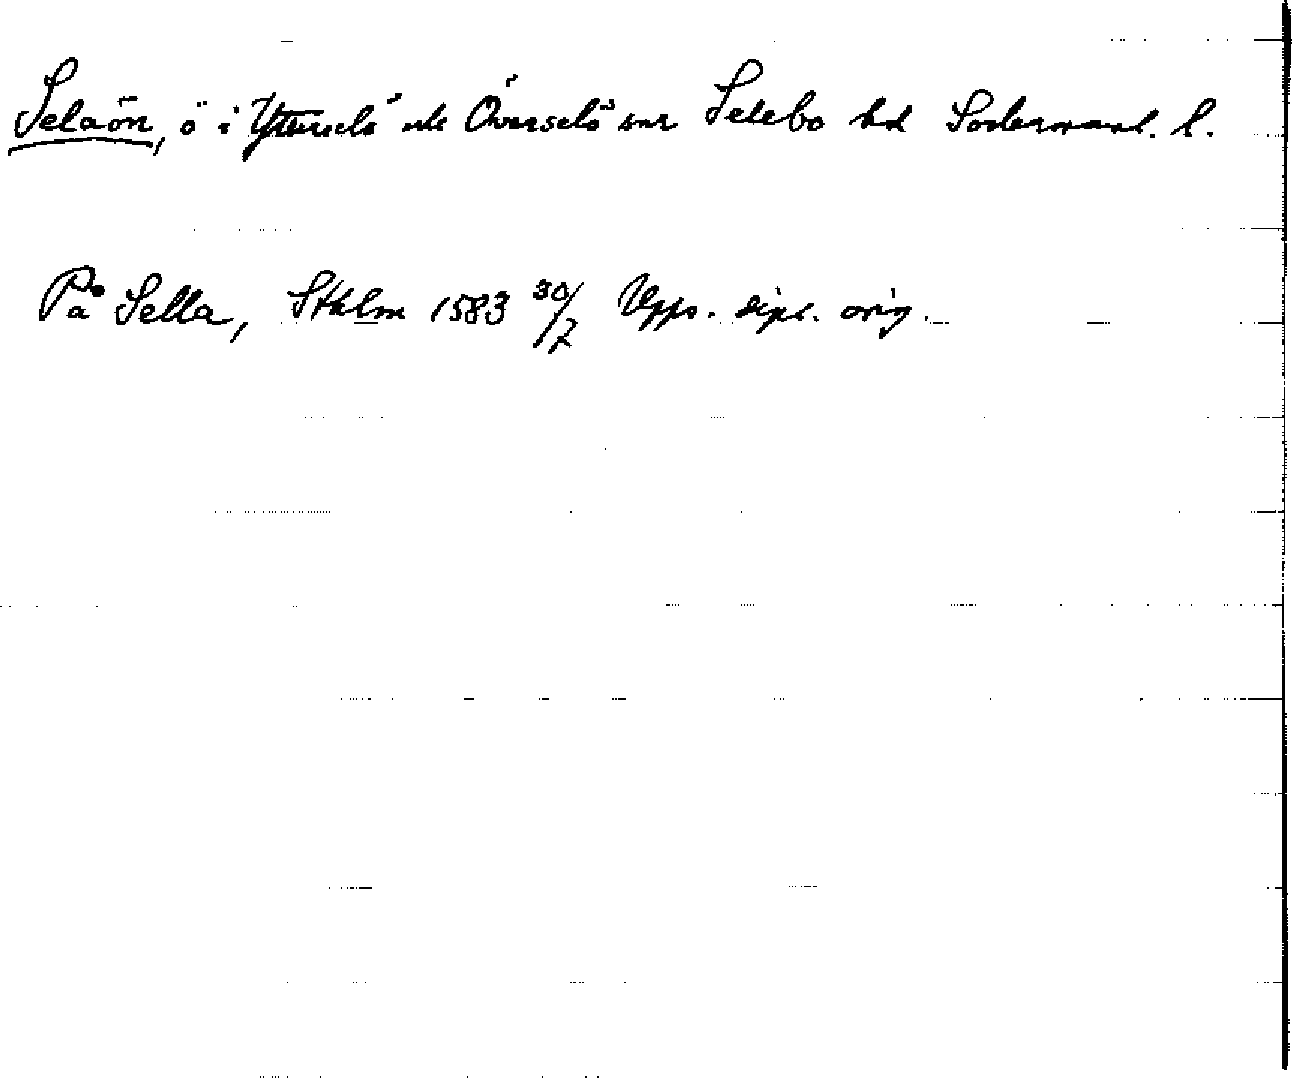 Selaön, ö i Ytterselö och Överselö snr Selebo hd Södermanl. l.
På Sella, Sthlm 1583 30/7 Upps. dipl. orig.